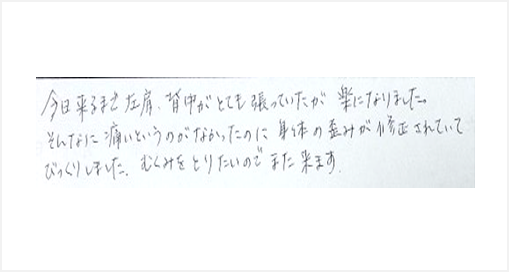 今日来るまで左肩、背中がとても張っていたが楽になりました。
そんなに痛いというのがなかったのに身体の歪みが修正されていて
びっくりしました。むくみをとりたいのでまた来ます。